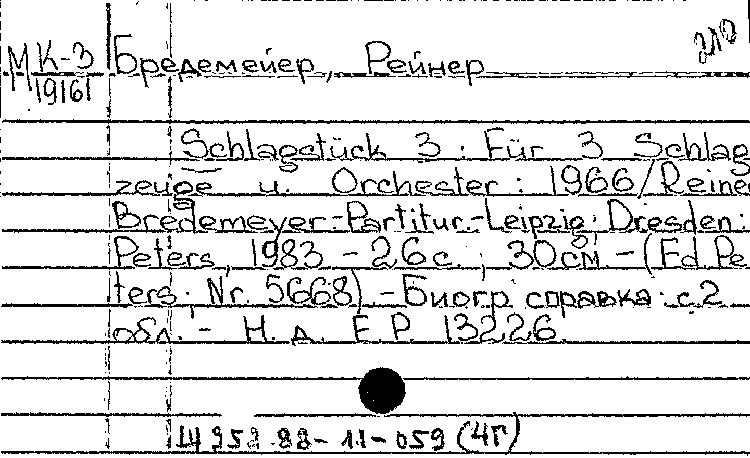 МК-3 Бредемейер, Рейнер
19161
Schlagstück 3 : Für 3 Schlag
zeuge u. Orchester : 1966/Reine
Bredemeyer.-Partitur.-Leipzig; Dresden:
Peters, 1983 - 26 с. ; 30 см. - (Ed. Pe
ters ; Nr. 5668) - Биогр. справка: с. 2
обл. - Н. д. E. P. 13226.
88-11-059 (4г)